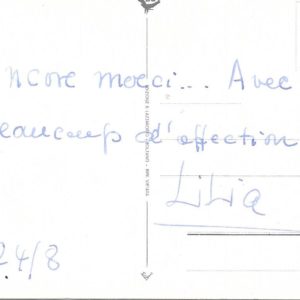 ncore merci... Avec
eaucoup d'affection
Lilia
24/8